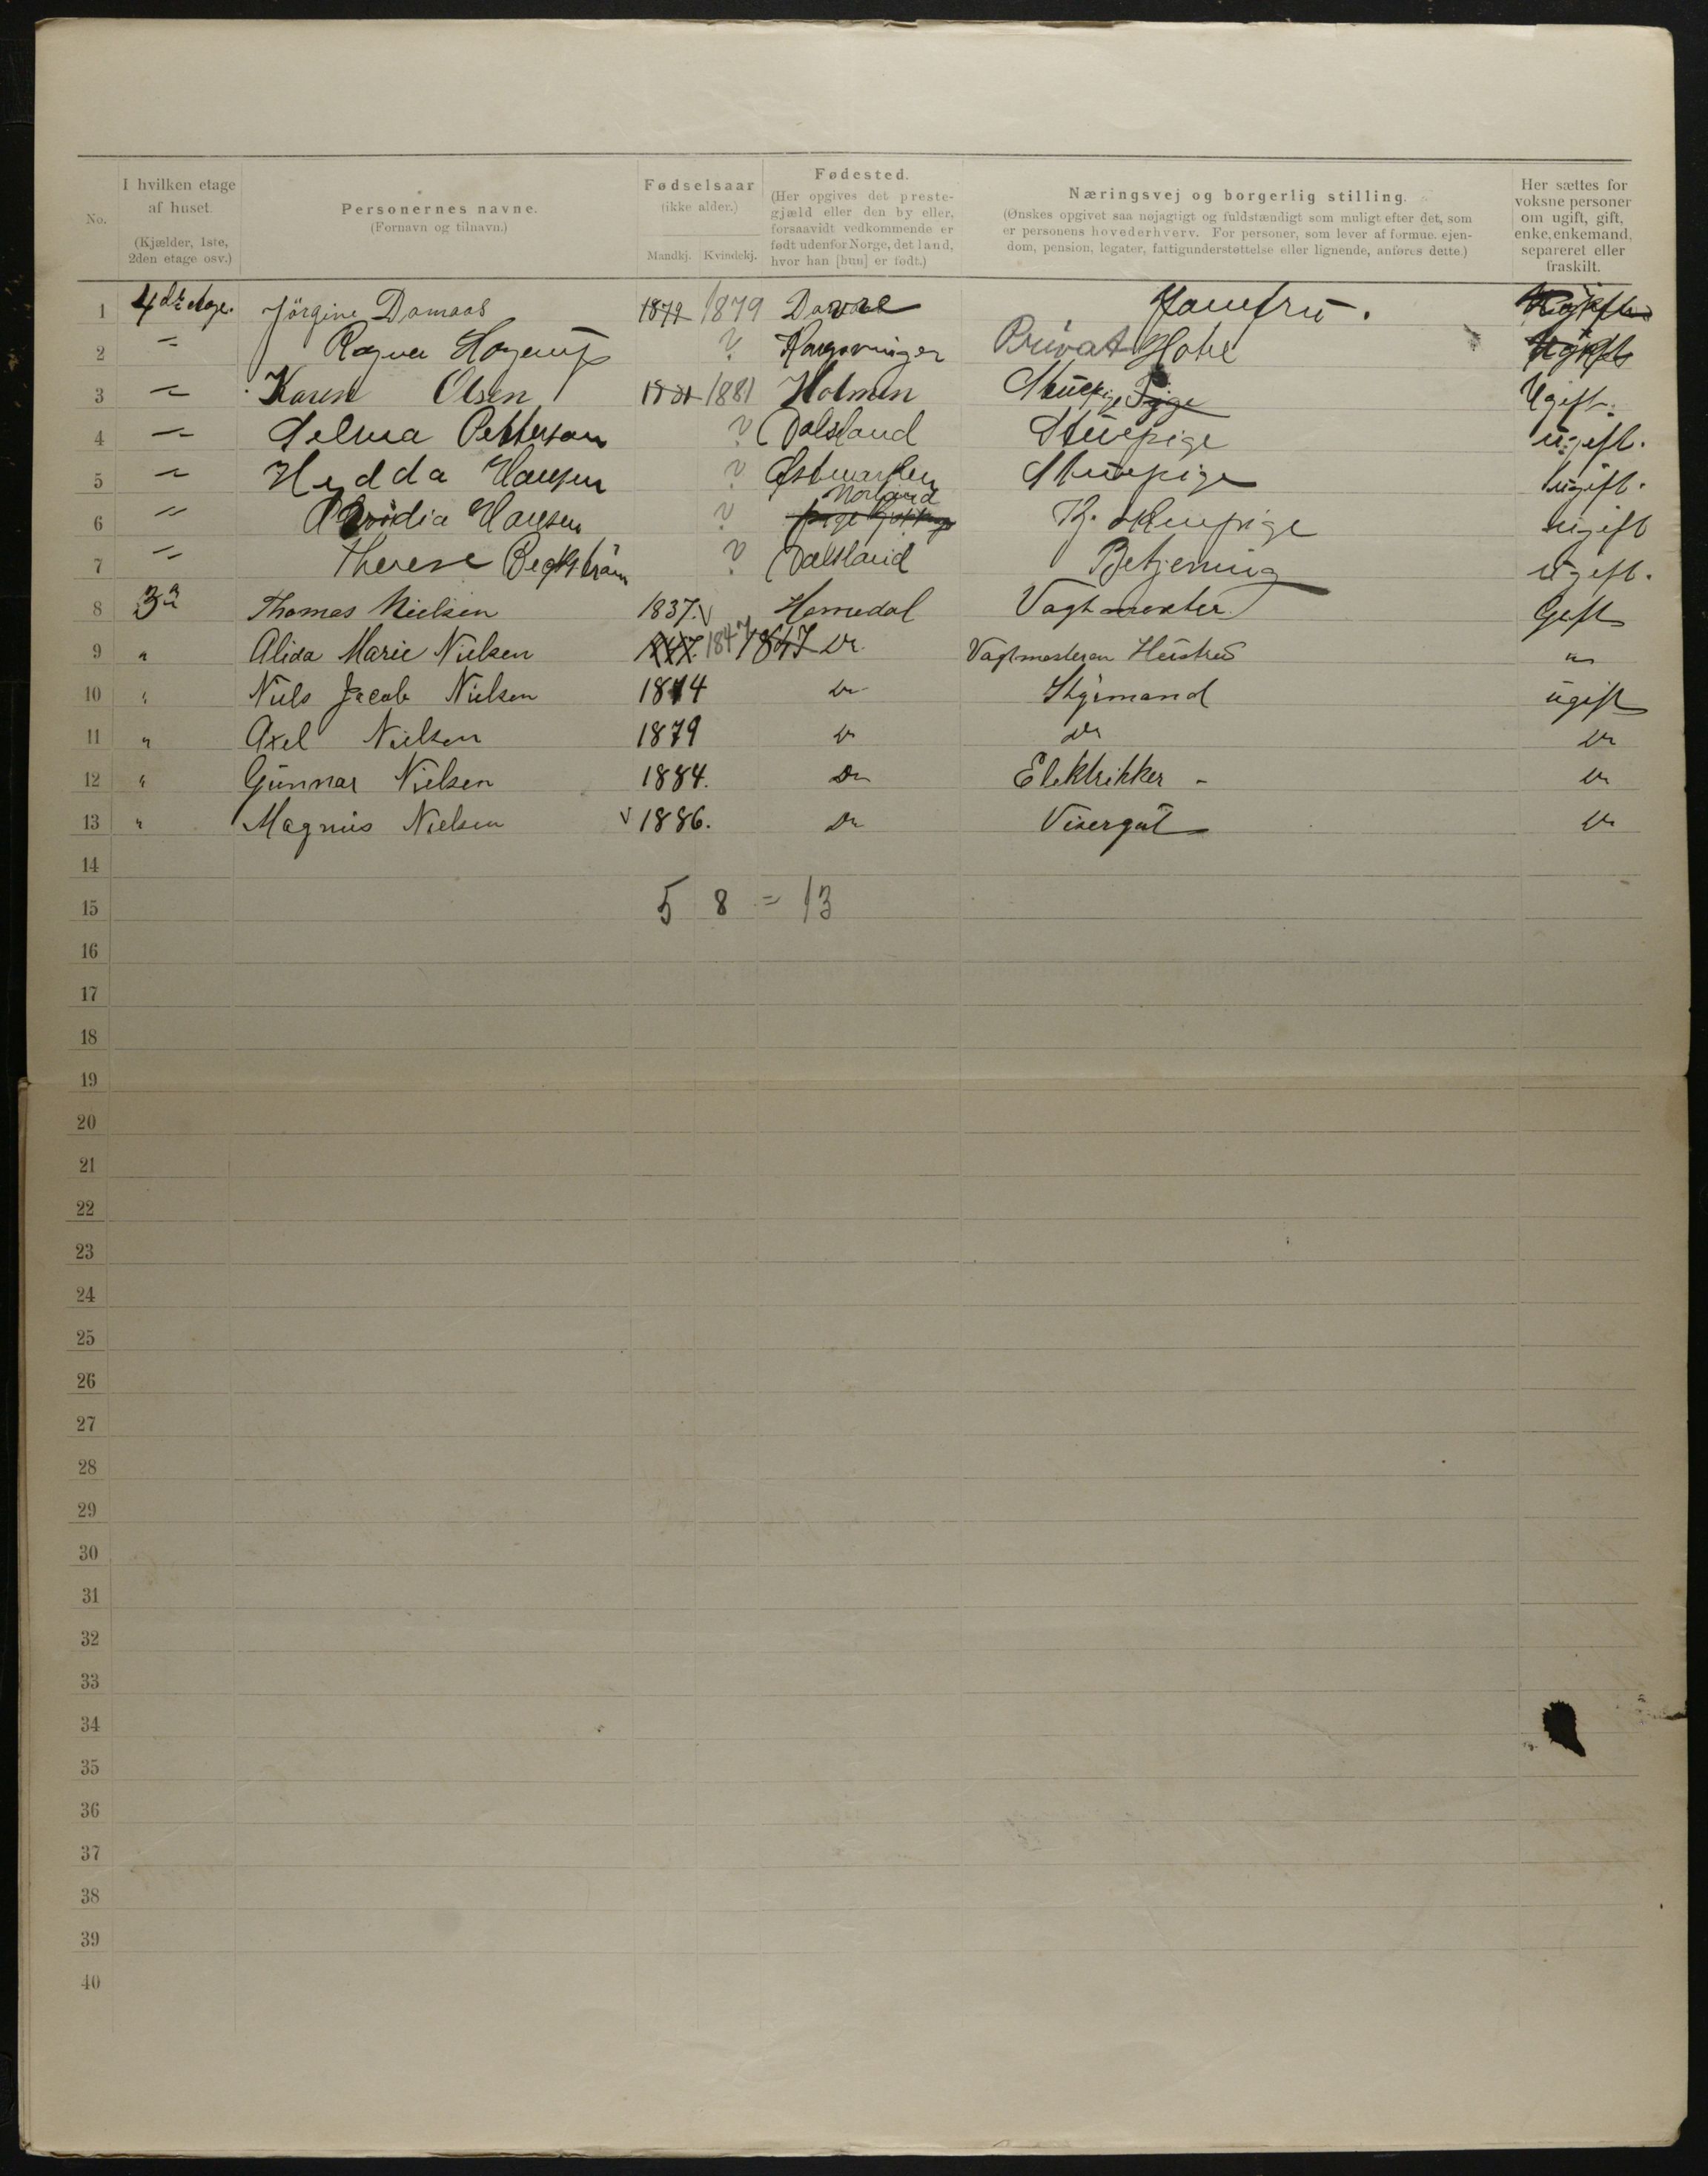 No.
I hvilken etage af huset.
(Kjælder, 1ste, 2den etage osv.)
Personernes navne.
(Fornavn og tilnavn.)
Fødselsaar
(ikke alder.)
Mandkj. Kvindekj.
Fødested.
(Her opgives det preste-
gjæld eller den by eller,
forsaavidt vedkommende er
født udenfor Norge, det land,
hvor han [hun] er født.)
Næringsvej og borgerlig stilling.
(Ønskes opgivet saa nøjagtigt og fuldstændigt som muligt efter det, som
er personens hovederhverv. For personer, som lever af formue, ejen-
dom, pension, legater, fattigunderstøttelse eller lignende, anføres dette.)
Her sættes for
voksne personer
om ugift, gift,
enke, enkemand,
separeret eller
fraskilt.
1 4de etage. Jörgine Damaas 1879 1879 Jomfru.
2 " Ragna ? Kongsvinger Privat Hotel
3 " Karen Olsen 1881 1881 Holmen Stuepige Pige Ugift.
4 " Selma Petterson ? Dalsland Stuepige ugift.
5 " Hedda Hansen ? Stuepige ugift.
6 " Hansen ? Norland ugift
7 " Therese ? Dalsland Betjening ugift.
8 3" Thomas Nielsen 1837. Homedal Vagtmester Gift
9 " Alida Marie Nielsen 1847 1847 Do Vagtmesteren Hustru "
10 " Niels Jacob Nielsen 1874 Do Styrmand ugift
11 " Axel Nielsen 1879 Do Do Do
12 " Gunnar Nielsen 1884. Do Elektrikker - Do
13 " Magnus Nielsen 1886. Do Visergut Do
14
15 5 8 = 13
16
17
18
19
20
21
22
23
24
25
26
27
28
29
30
31
32
33
34
35
36
37
38
39
40